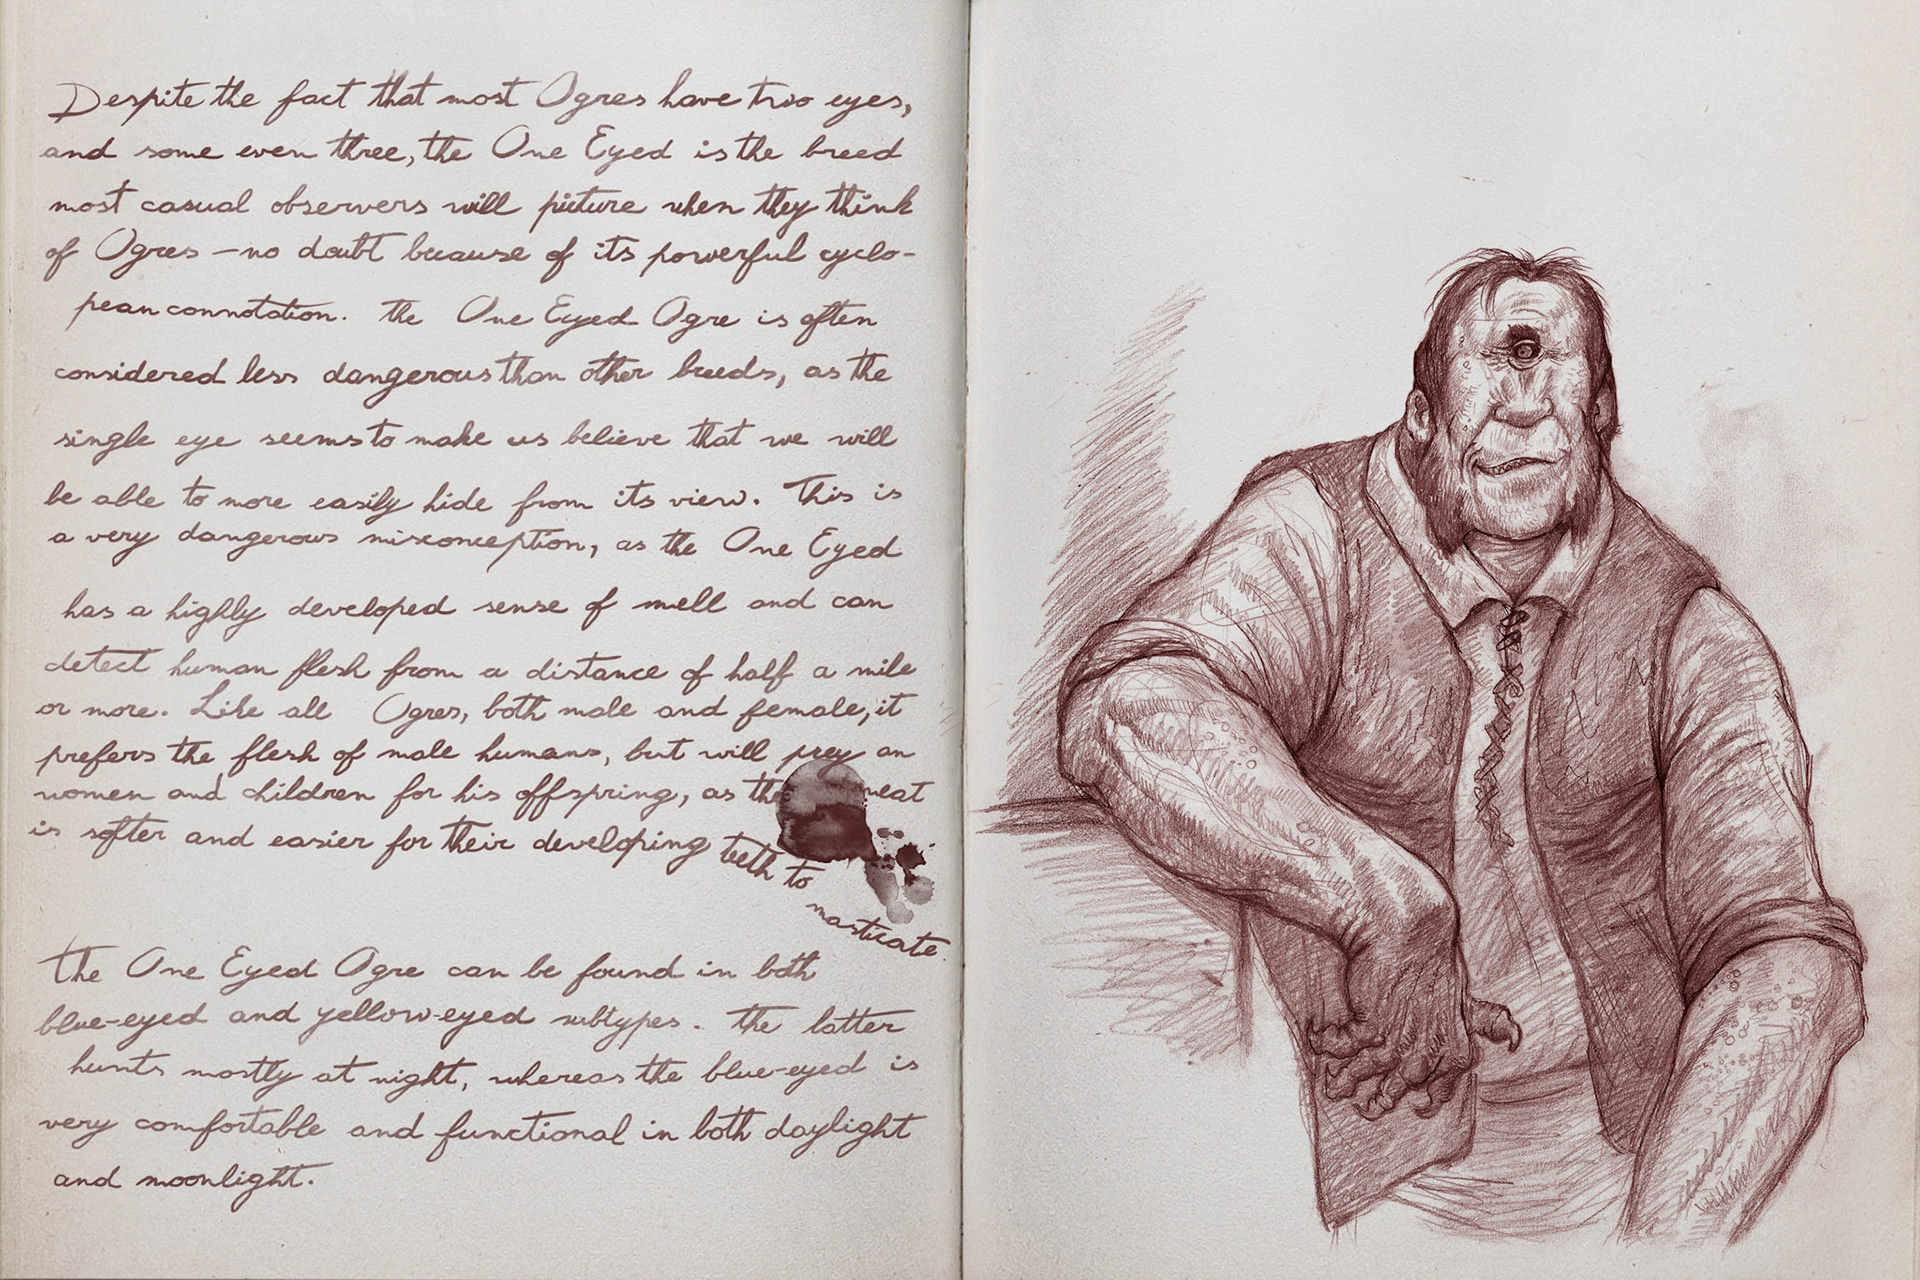 Despite the fact that most Ogres have two eyes,
and some even three, the One Eyed is the breed
most casual observers will picture when they think
of Ogres - no doubt because of its powerful cyclo-
pean connotation. The One Eyed Ogre is often
considered less dangerous than other breeds, as the
single eye seems to make us believe that we will
be able to more easily hide from its view. This is
a very dangerous misconception, as the One Eyed
has a highly developed sense of smell and can
detect human flesh from a distance of half a mile
or more. Like all Ogres, both male and female, it
prefers the flesh of male humans, but will prey on
women and children for his offspring, as the meat
is softer and easier for their developing teeth to
masticate.
The One Eyed Ogre can be found in both
blue-eyed and yellow-eyed subtypes. The latter
hunts mostly at night, whereas the blue-eyed is
very comfortable and functional in both daylight
and moonlight.